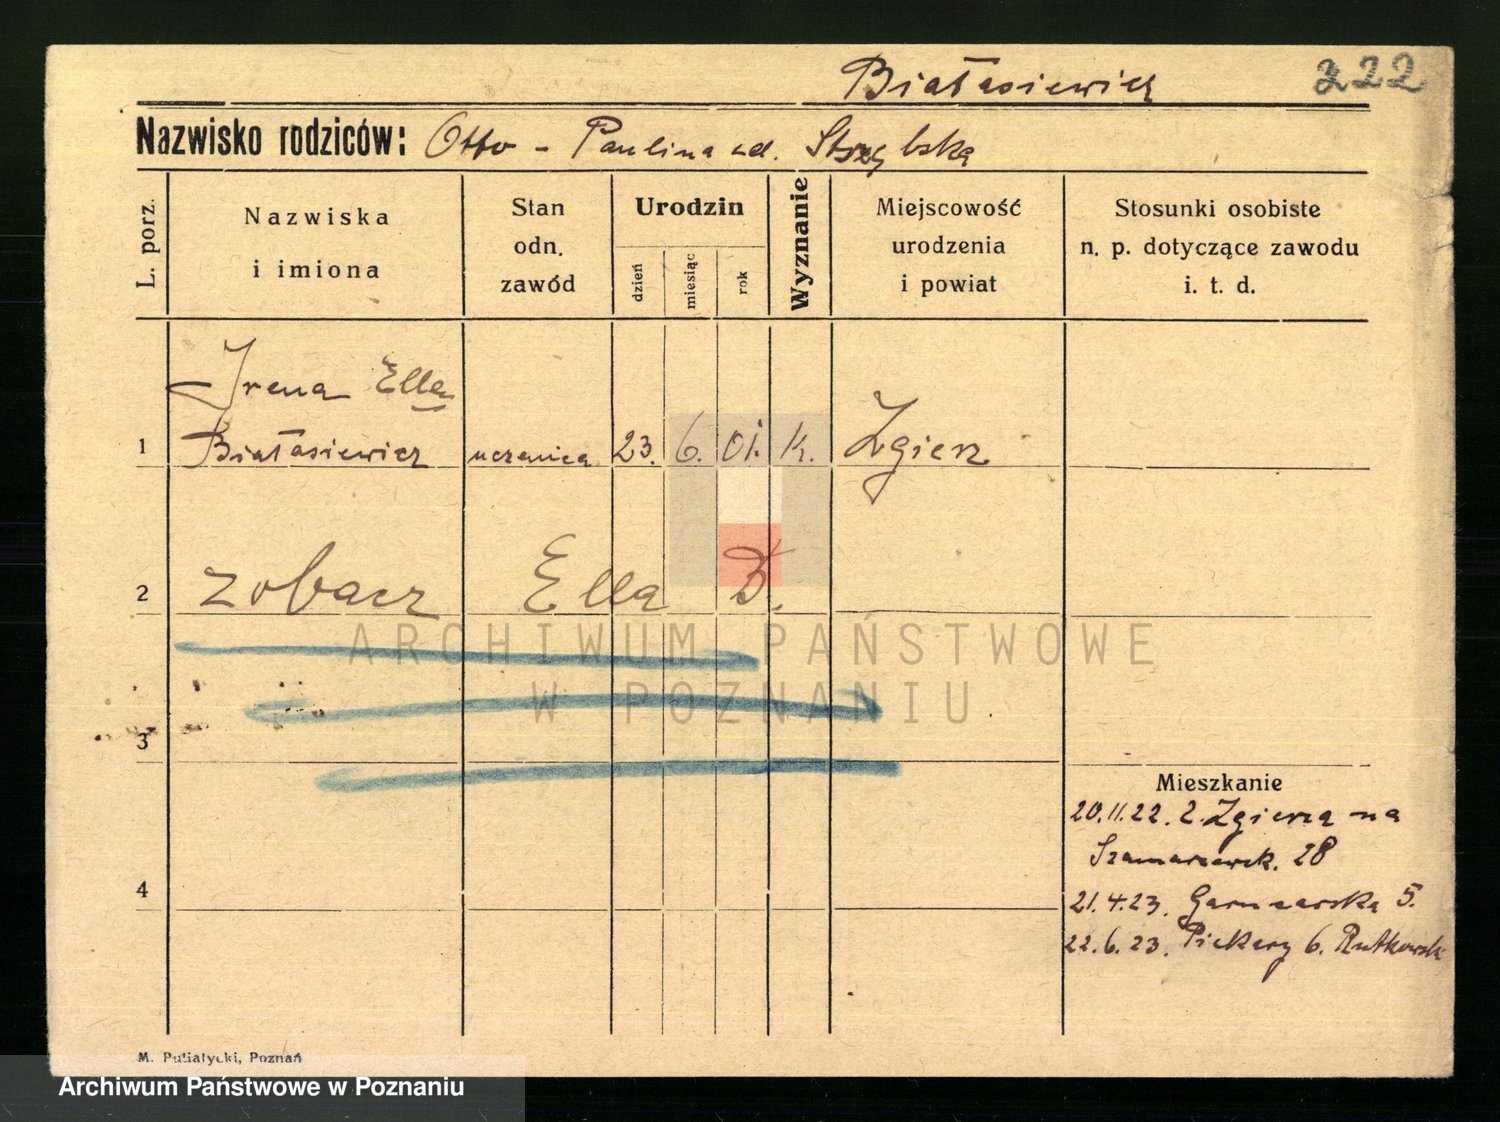 Białasiewicz
222
Nazwisko rodziców: Otto - Paulina
L. porz.
Nazwiska
i imiona
Stan
odn.
zawód
Urodzin
dzień
miesiąc
rok
Wyznanie
Miejscowość
urodzenia
i powiat
Stosunki osobiste
n. p. dotyczące zawodu
i. t. d.
Irena Ella
1 Białasiewicz uczenica 23. 6. 01. k. Zgierz
2 zobacz Ella B.
3
4
Mieszkanie
20.11.22. z. Zgierza na
Szamarzewsk. 28
21.4.23. Garncarska 5.
22.6.23. Piekary 6. Rutkowski
M. Putiatycki, Poznań
ARCHIWUM PAŃSTWOWE
W POZNANIU
Archiwum Państwowe w Poznaniu